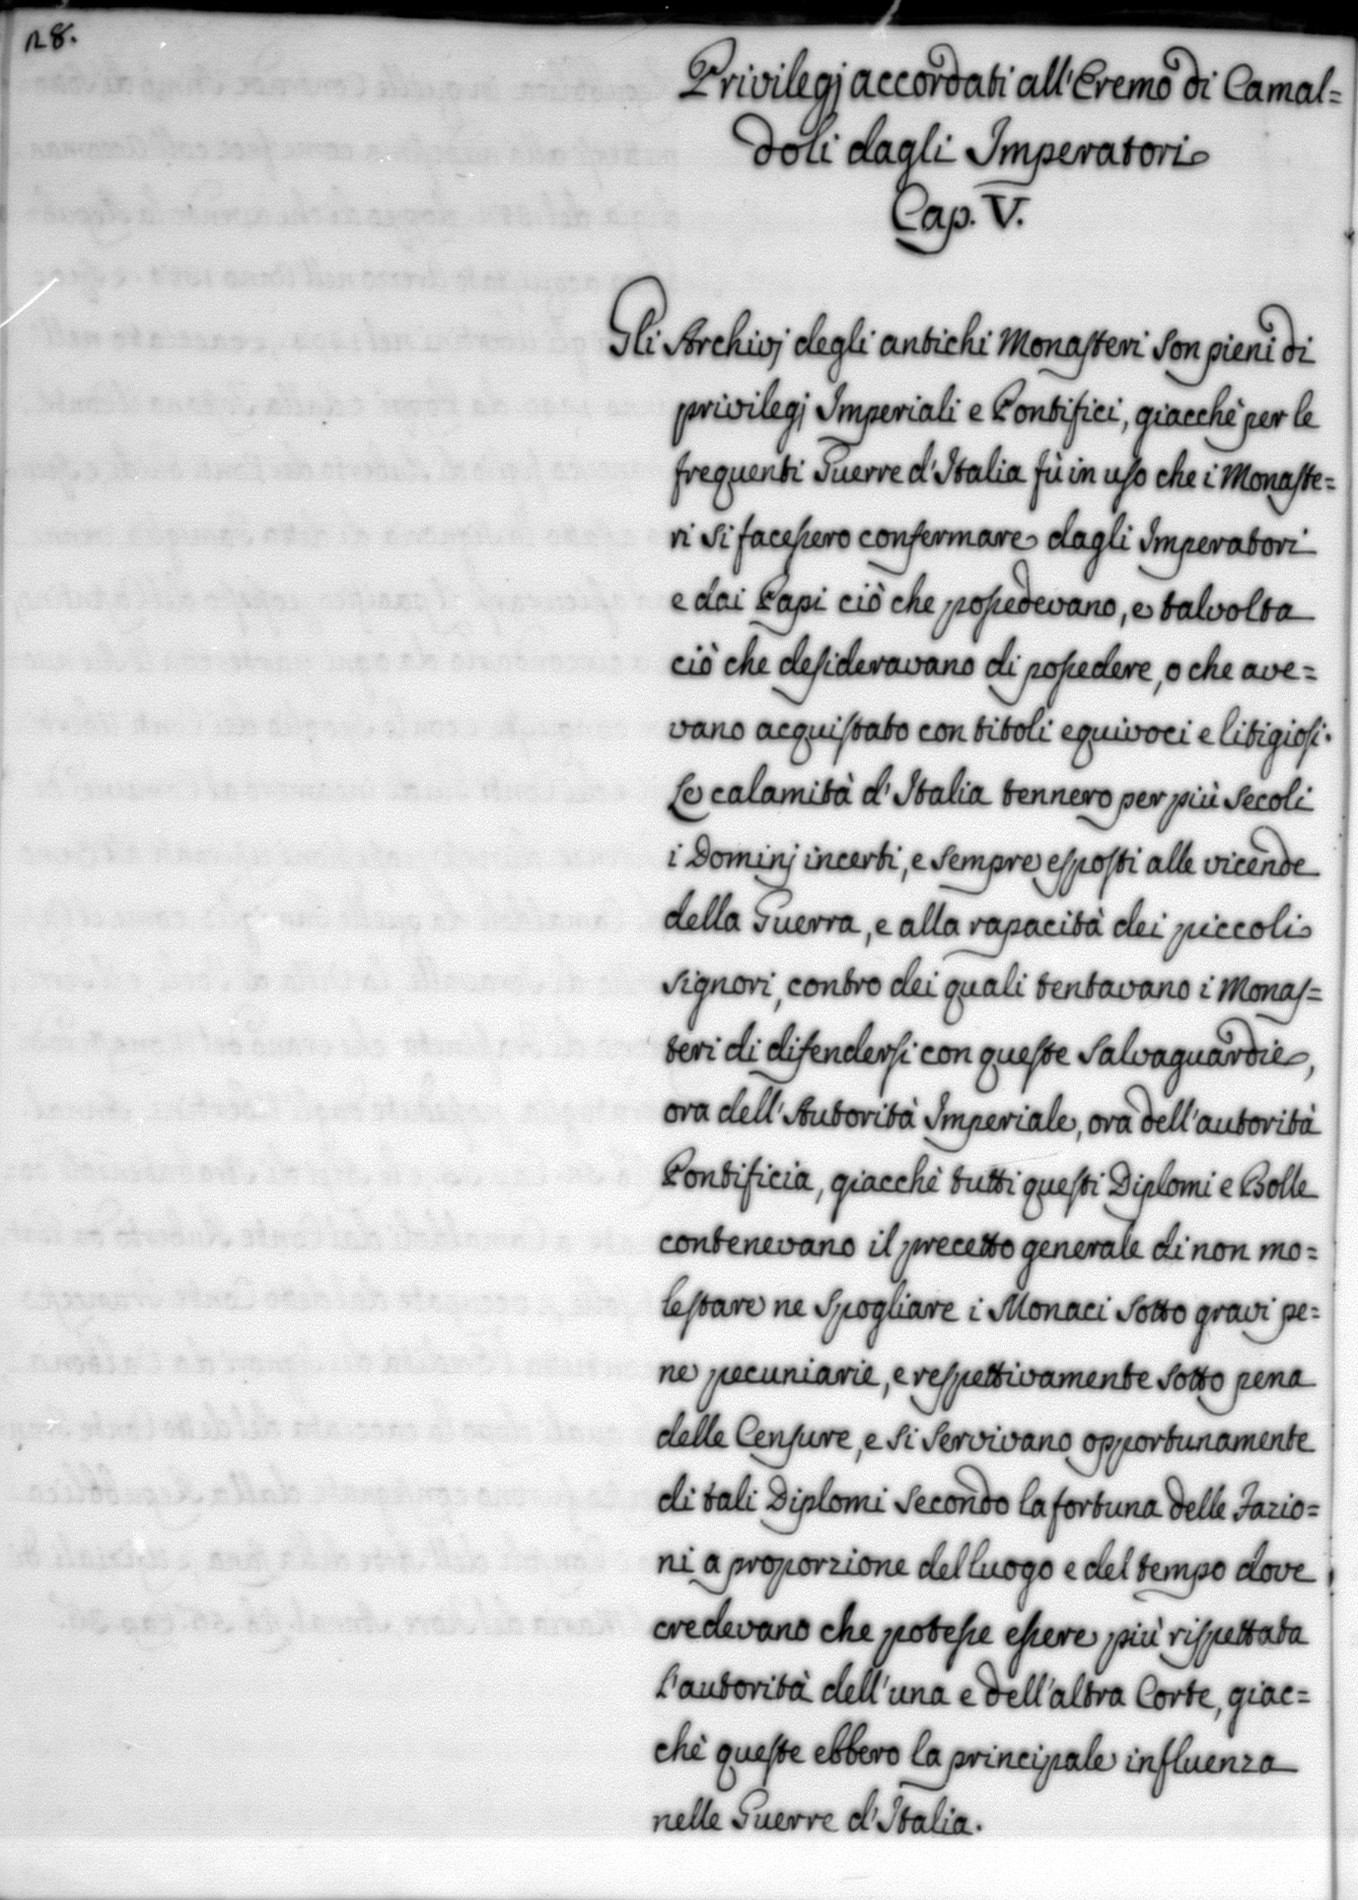 128.
Privilegj accordati all'Eremo di Camal=
doli dagli Imperatori
Cap. V.
Gli Archivj degli antichi Monasteri son pieni di
privilegj Imperiali e Pontifici, giacchè per le
frequenti Guerre d'Italia fù in uso che i Monaste=
ri si facessero confermare dagli Imperatori
e dai Papi ciò che possedevano, e talvolta
ciò che desideravano di possedere, o che ave=
vano acquistato con titoli equivoci e litigiosi.
Le calamità d'Italia tennero per più secoli
i Dominj incerti, e sempre esposti alle vicende
della Guerra, e alla rapacità dei piccoli
signori, contro dei quali tentavano i Monas=
teri di difendersi con queste salvaguardie,
ora dell'Autorità Imperiale, ora dell'autorità
Pontificia, giacchè tutti questi Diplomi e Bolle
contenevano il precetto generale di non mo=
lestare ne spogliare i Monaci sotto gravi pe=
ne pecuniarie, e respettivamente sotto pena
delle Censure, e si servivano opportunamente
di tali Diplomi secondo la fortuna delle Fazio=
ni a proporzione del luogo e del tempo dove
credevano che potesse essere più rispettata
l'autorità dell'una e dell'altra Corte, giac=
chè queste ebbero la principale influenza
nelle Guerre d'Italia.